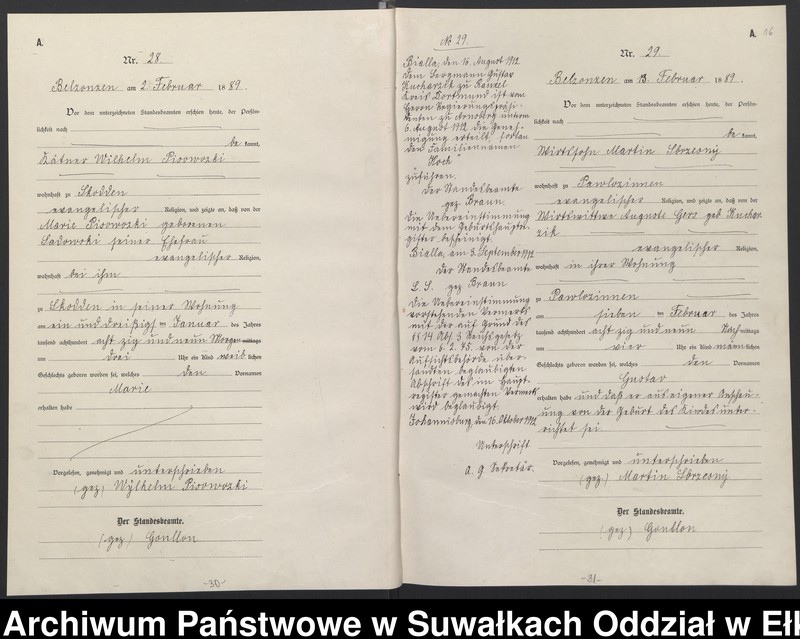 A.
Nr. 28
Belzonzen am 2. Februar 1889.
Vor dem unterzeichneten Standesbeamten erschien heute, der Persön-
lichkeit nach
be kannt,
Kätner Wilhelm Piowozki
wohnhaft zu Skodden
evangelischer Religion, und zeigte an, daß von der
Marie Piowozki geborenen
Sadowski seiner Ehefrau
evangelischer Religion,
wohnhaft bei ihm
zu Skodden in seiner Wohnung
am ein und dreißigsten Januar des Jahres
tausend achthundert achtzig und neun Morgens mittags
um drei Uhr ein Kind weiblichen
Geschlechts geboren worden sei, welches den Vornamen
Marie
erhalten habe
Vorgelesen, genehmigt und unterschrieben
(gez) Wylhelm Piowozki
Der Standesbeamte.
(gez)
-30-
№ 29.
Bialla, den 16. August 1912
Dem Bergmann Gustav
Kucharzik zu
Kreis Dortmund ist vom
Herrn Regierungspräsi-
denten zu Arnsberg unterm
6. August 1912 die Geneh-
migung erteilt, fortan
den Familiennamen
"Koch"
zuführen.
Der Standesbeamte
gez Braun.
Die Uebereinstimmung
mit dem Geburtshauptre-
gister bescheinigt.
Bialla, am 3. September 1912
Der Standesbeamte
L. S. gez Braun
Die Uebereinstimmung
vorstehenden Vermerks
mit der auf Grund des
§ 14 Abs. 3 Reichsgesetz
vom 6.2.75. von der
Aufsichtsbehörde über-
sandten beglaubigten
Abschrift des im Haupt-
register gemachten Vermerks
wird beglaubigt.
Johannisburg, den 16. Oktober 1912
Unterschrift
a. g. Sekretär.
A. 16
Nr. 29.
Belzonzen am 13. Februar 1889.
Vor dem unterzeichneten Standesbeamten erschien heute, der Persön-
lichkeit nach
be kannt,
Wirtssohn Martin
wohnhaft zu Pawlozinnen
evangelischer Religion, und zeigte an, daß von der
Wirtswittwe Auguste Gerz geb. Kuchar-
zik
evangelischer Religion,
wohnhaft in ihrer Wohnung
zu Pawlozinnen
am sieben ten Februar des Jahres
tausend achthundert achtzig und neun Nachmittags
um vier Uhr ein Kind männlichen
Geschlechts geboren worden sei, welches den Vornamen
Gustav
erhalten habe und daß er aus eigener Anschau-
ung von der Geburt des Kindes unter-
richtet sei
Vorgelesen, genehmigt und unterschrieben
(gez.) Martin
Der Standesbeamte.
(gez)
-31-
Archiwum Państwowe w Suwałkach Oddział w Eł